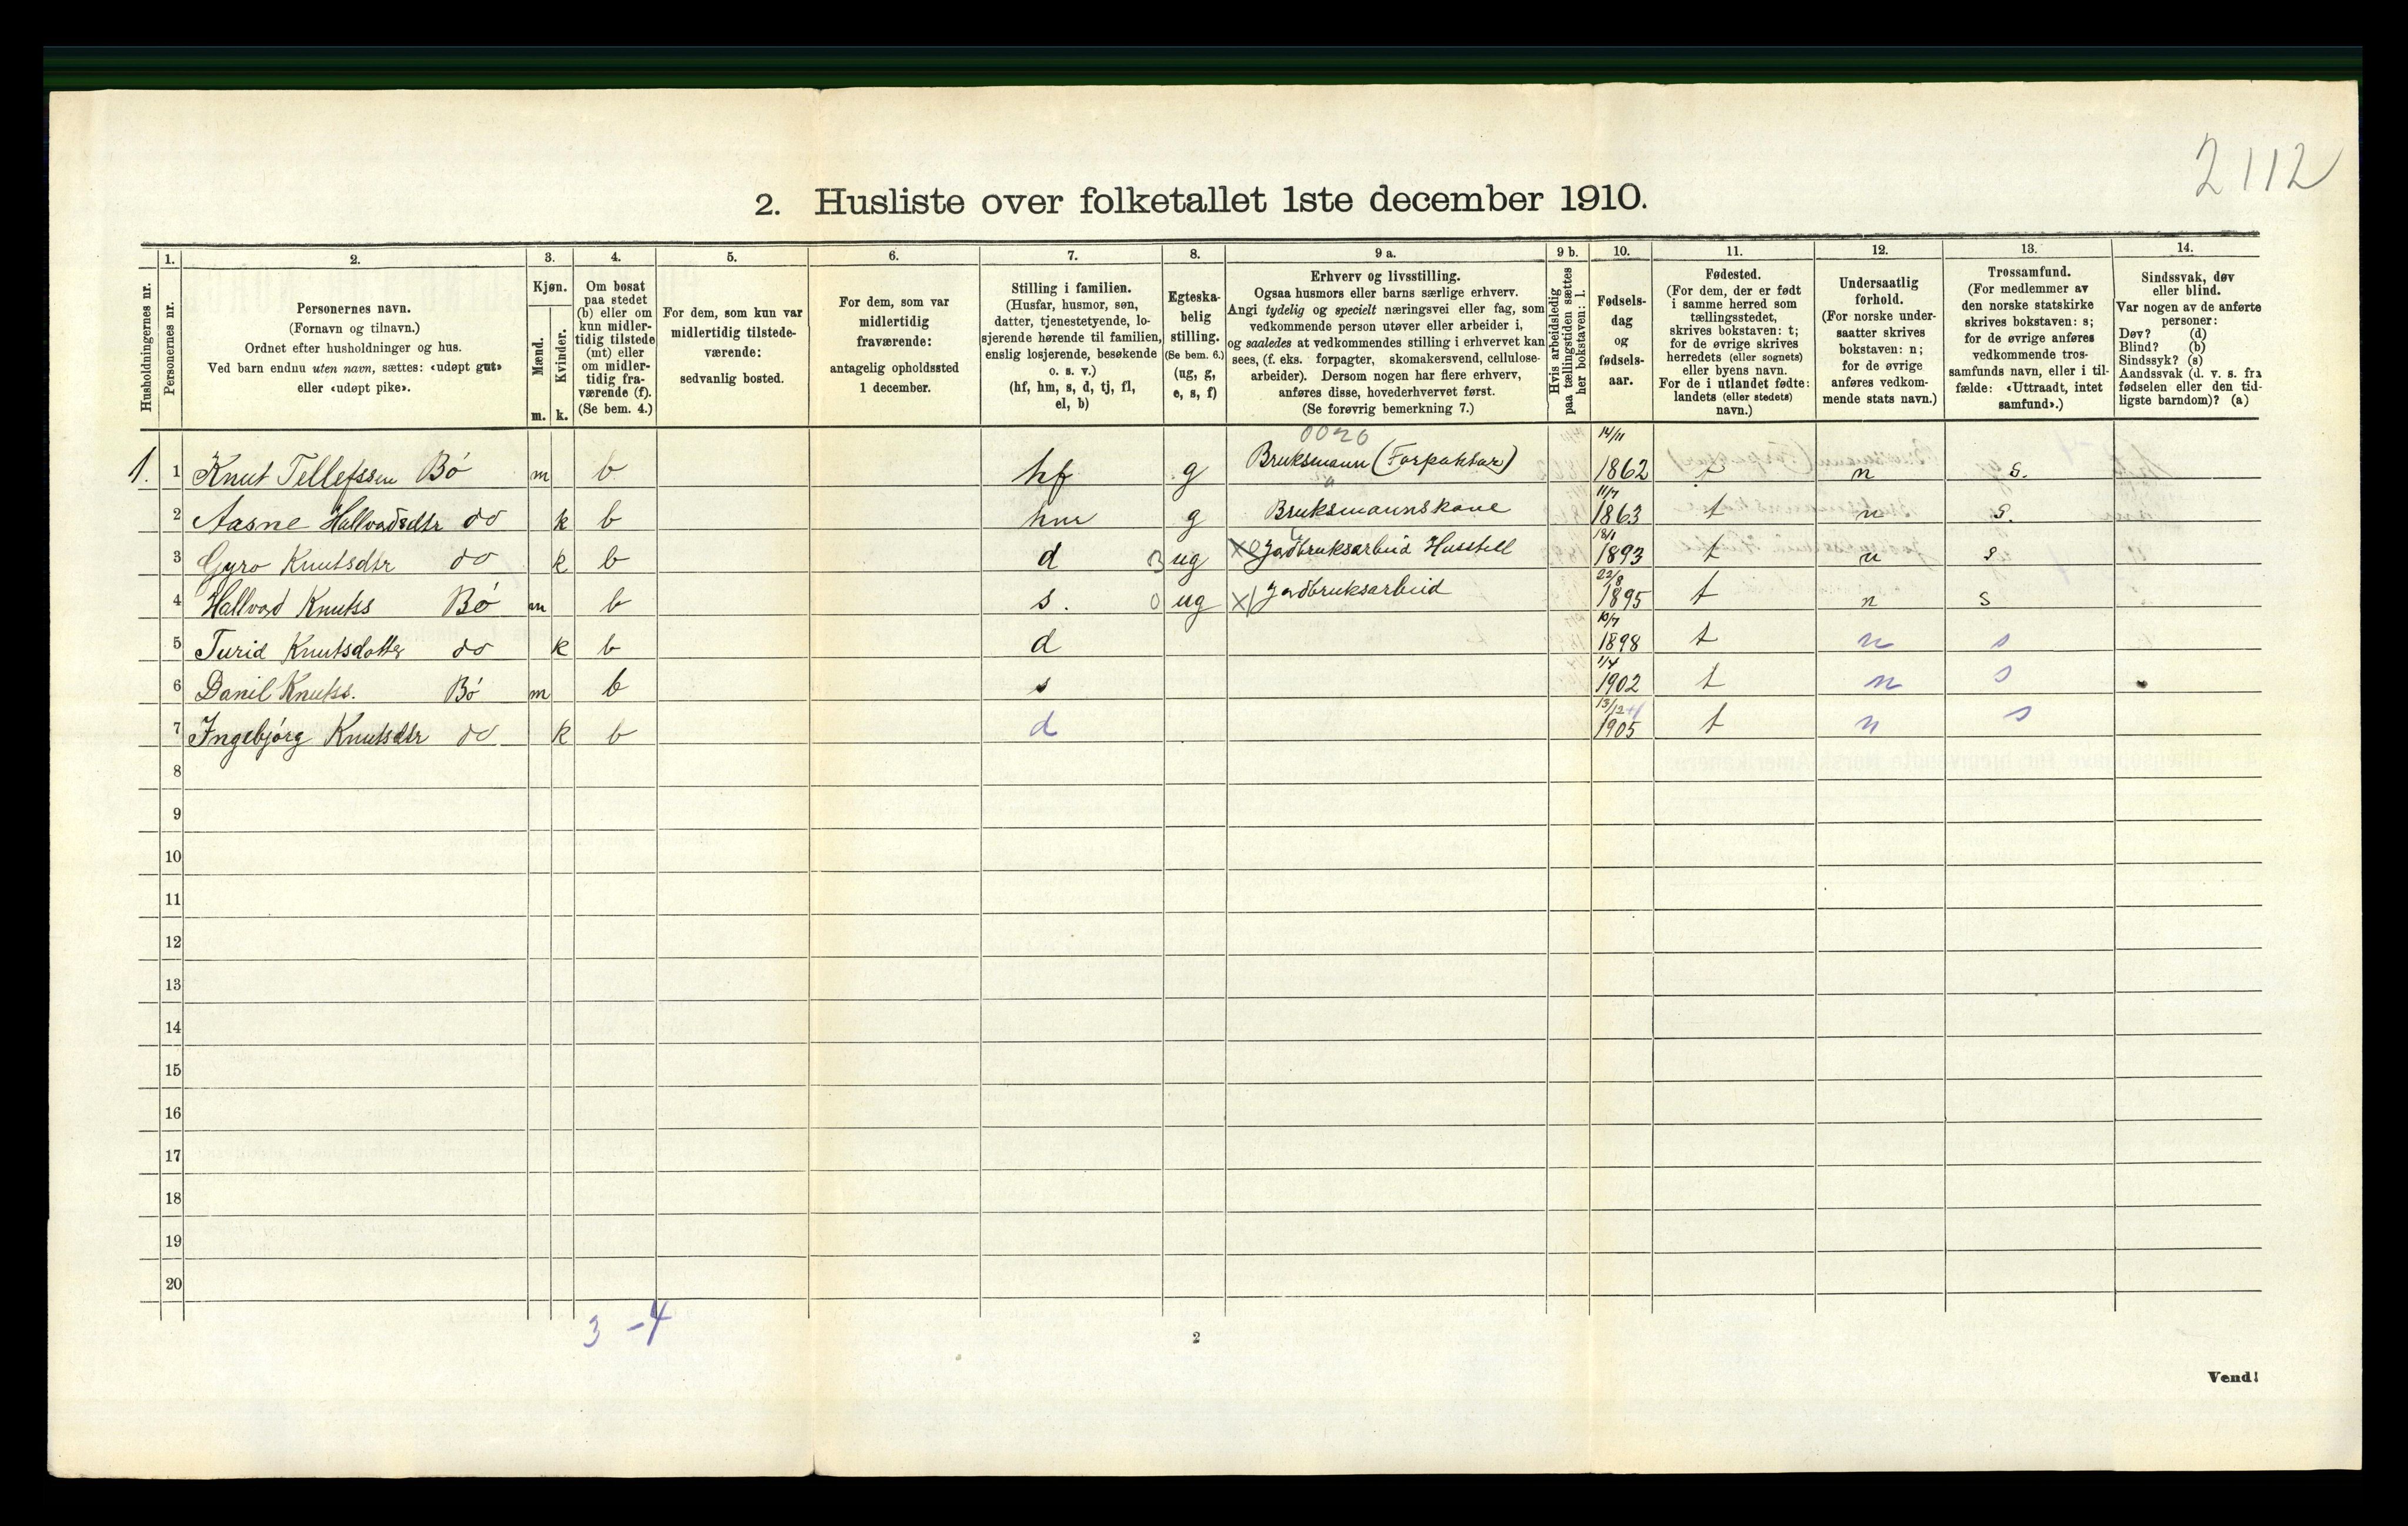 2112
2. Husliste over folketallet 1ste december 1910.
Husholdningernes nr.
1.
Personernes nr.
2.
Personernes navn.
(Fornavn og tilnavn.)
Ordnet efter husholdninger og hus.
Ved barn endnu uten navn, sættes: «udøpt gut»
eller «udøpt pike».
3.
Kjøn.
Mænd.
Kvinder.
m. k.
4.
Om bosat
paa stedet
(b) eller om
kun midler-
tidig tilstede
(mt) eller
om midler-
tidig fra-
værende (f).
(Se bem. 4.)
5.
For dem, som kun var
midlertidig tilstede-
værende:
sedvanlig bosted.
6.
For dem, som var
midlertidig
fraværende:
antagelig opholdssted
1 december.
7.
Stilling i familien.
(Husfar, husmor, søn,
datter, tjenestetyende, lo-
sjerende hørende til familien,
enslig losjerende, besøkende
o. s. v.)
(hf, hm, s, d, tj, fl,
el, b)
8.
Egteska-
belig
stilling.
(Se bem. 6.)
(ug, g,
e, s, f)
9 a.
Erhverv og livsstilling.
Ogsaa husmors eller barns særlige erhverv.
Angi tydelig og specielt næringsvei eller fag, som
vedkommende person utøver eller arbeider i,
og saaledes at vedkommendes stilling i erhvervet kan
sees, (f. eks. forpagter, skomakersvend, cellulose-
arbeider). Dersom nogen har flere erhverv,
anføres disse, hovederhvervet først.
(Se forøvrig bemerkning 7.)
9 b.
Hvis arbeidsledig
paa tællingstiden sættes
her bokstaven: l.
10.
Fødsels-
dag
og
fødsels-
aar.
11.
Fødested.
(For dem, der er født
i samme herred som
tællingsstedet,
skrives bokstaven: t;
for de øvrige skrives
herredets (eller sognets)
eller byens navn.
For de i utlandet fødte:
landets (eller stedets)
navn.)
12.
Undersaatlig
forhold.
(For norske under-
saatter skrives
bokstaven: n;
for de øvrige
anføres vedkom-
mende stats navn.)
13.
Trossamfund.
(For medlemmer av
den norske statskirke
skrives bokstaven: s;
for de øvrige anføres
vedkommende tros-
samfunds navn, eller i til-
fælde: «Uttraadt, intet
samfund».)
14.
Sindssvak, døv
eller blind.
Var nogen av de anførte
personer:
Døv? (d)
Blind? (b)
Sindssyk? (s)
Aandssvak (d. v. s. fra
fødselen eller den tid-
ligste barndom)? (a)
0020
1. 1 Knut Tellefssen Bó m b hf g Bruksmann (Forpaktar) 14/11 1862 t n s.
2 Aasne Hallvadsdtr do k b hm g Bruksmannskone 11/7 1863 t n s.
3 Gyro Knutsdtr do k b d ug Jordbruksarbeid Husstell 18/1 1893 t n s
4 Hallvard Knutss Bó m b s. 0 ug X1 Jordbruksarbeid 22/8 1895 t n s
5 Turid Knutsdotter do k b d 10/7 1898 t n s
6 Danil Knutss. Bó m b s 1/4 1902 t n s
7 Ingebjórg Knutsdtr do k b d 13/12 1905 t n s
8
9
10
11
12
13
14
15
16
17
18
19
20
3 - 4
2
Vend!